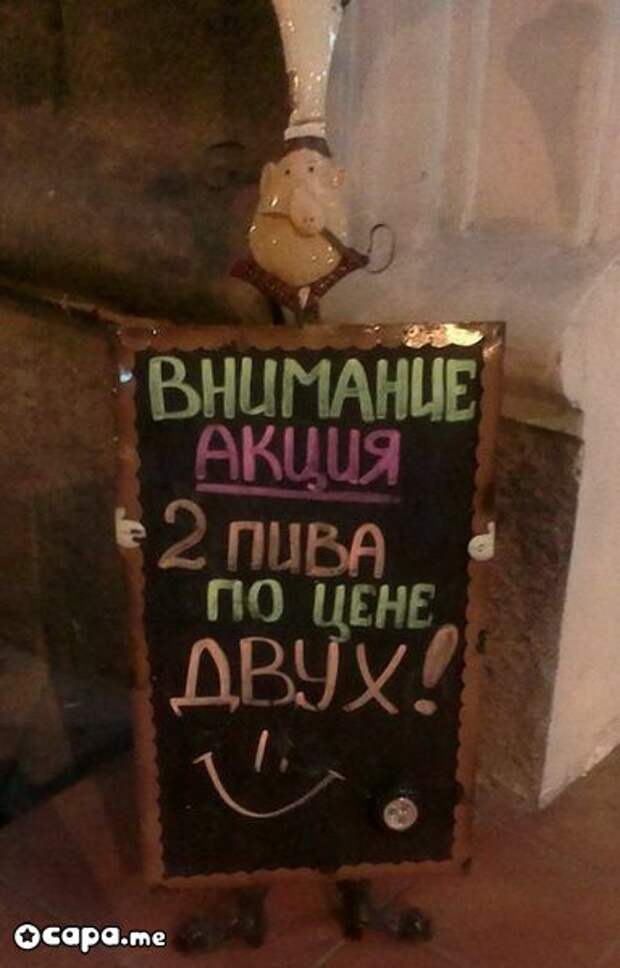 ВНИМАНИЕ
АКЦИЯ
2 ПИВА
ПО ЦЕНЕ
ДВУХ!
capa.me